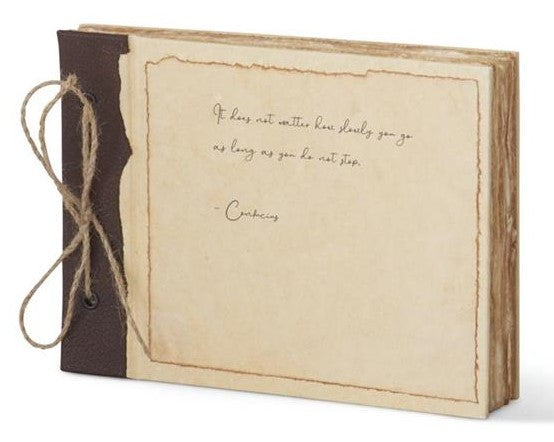 It does not matter how slowly you go
as long as you do not stop.
- Confucius